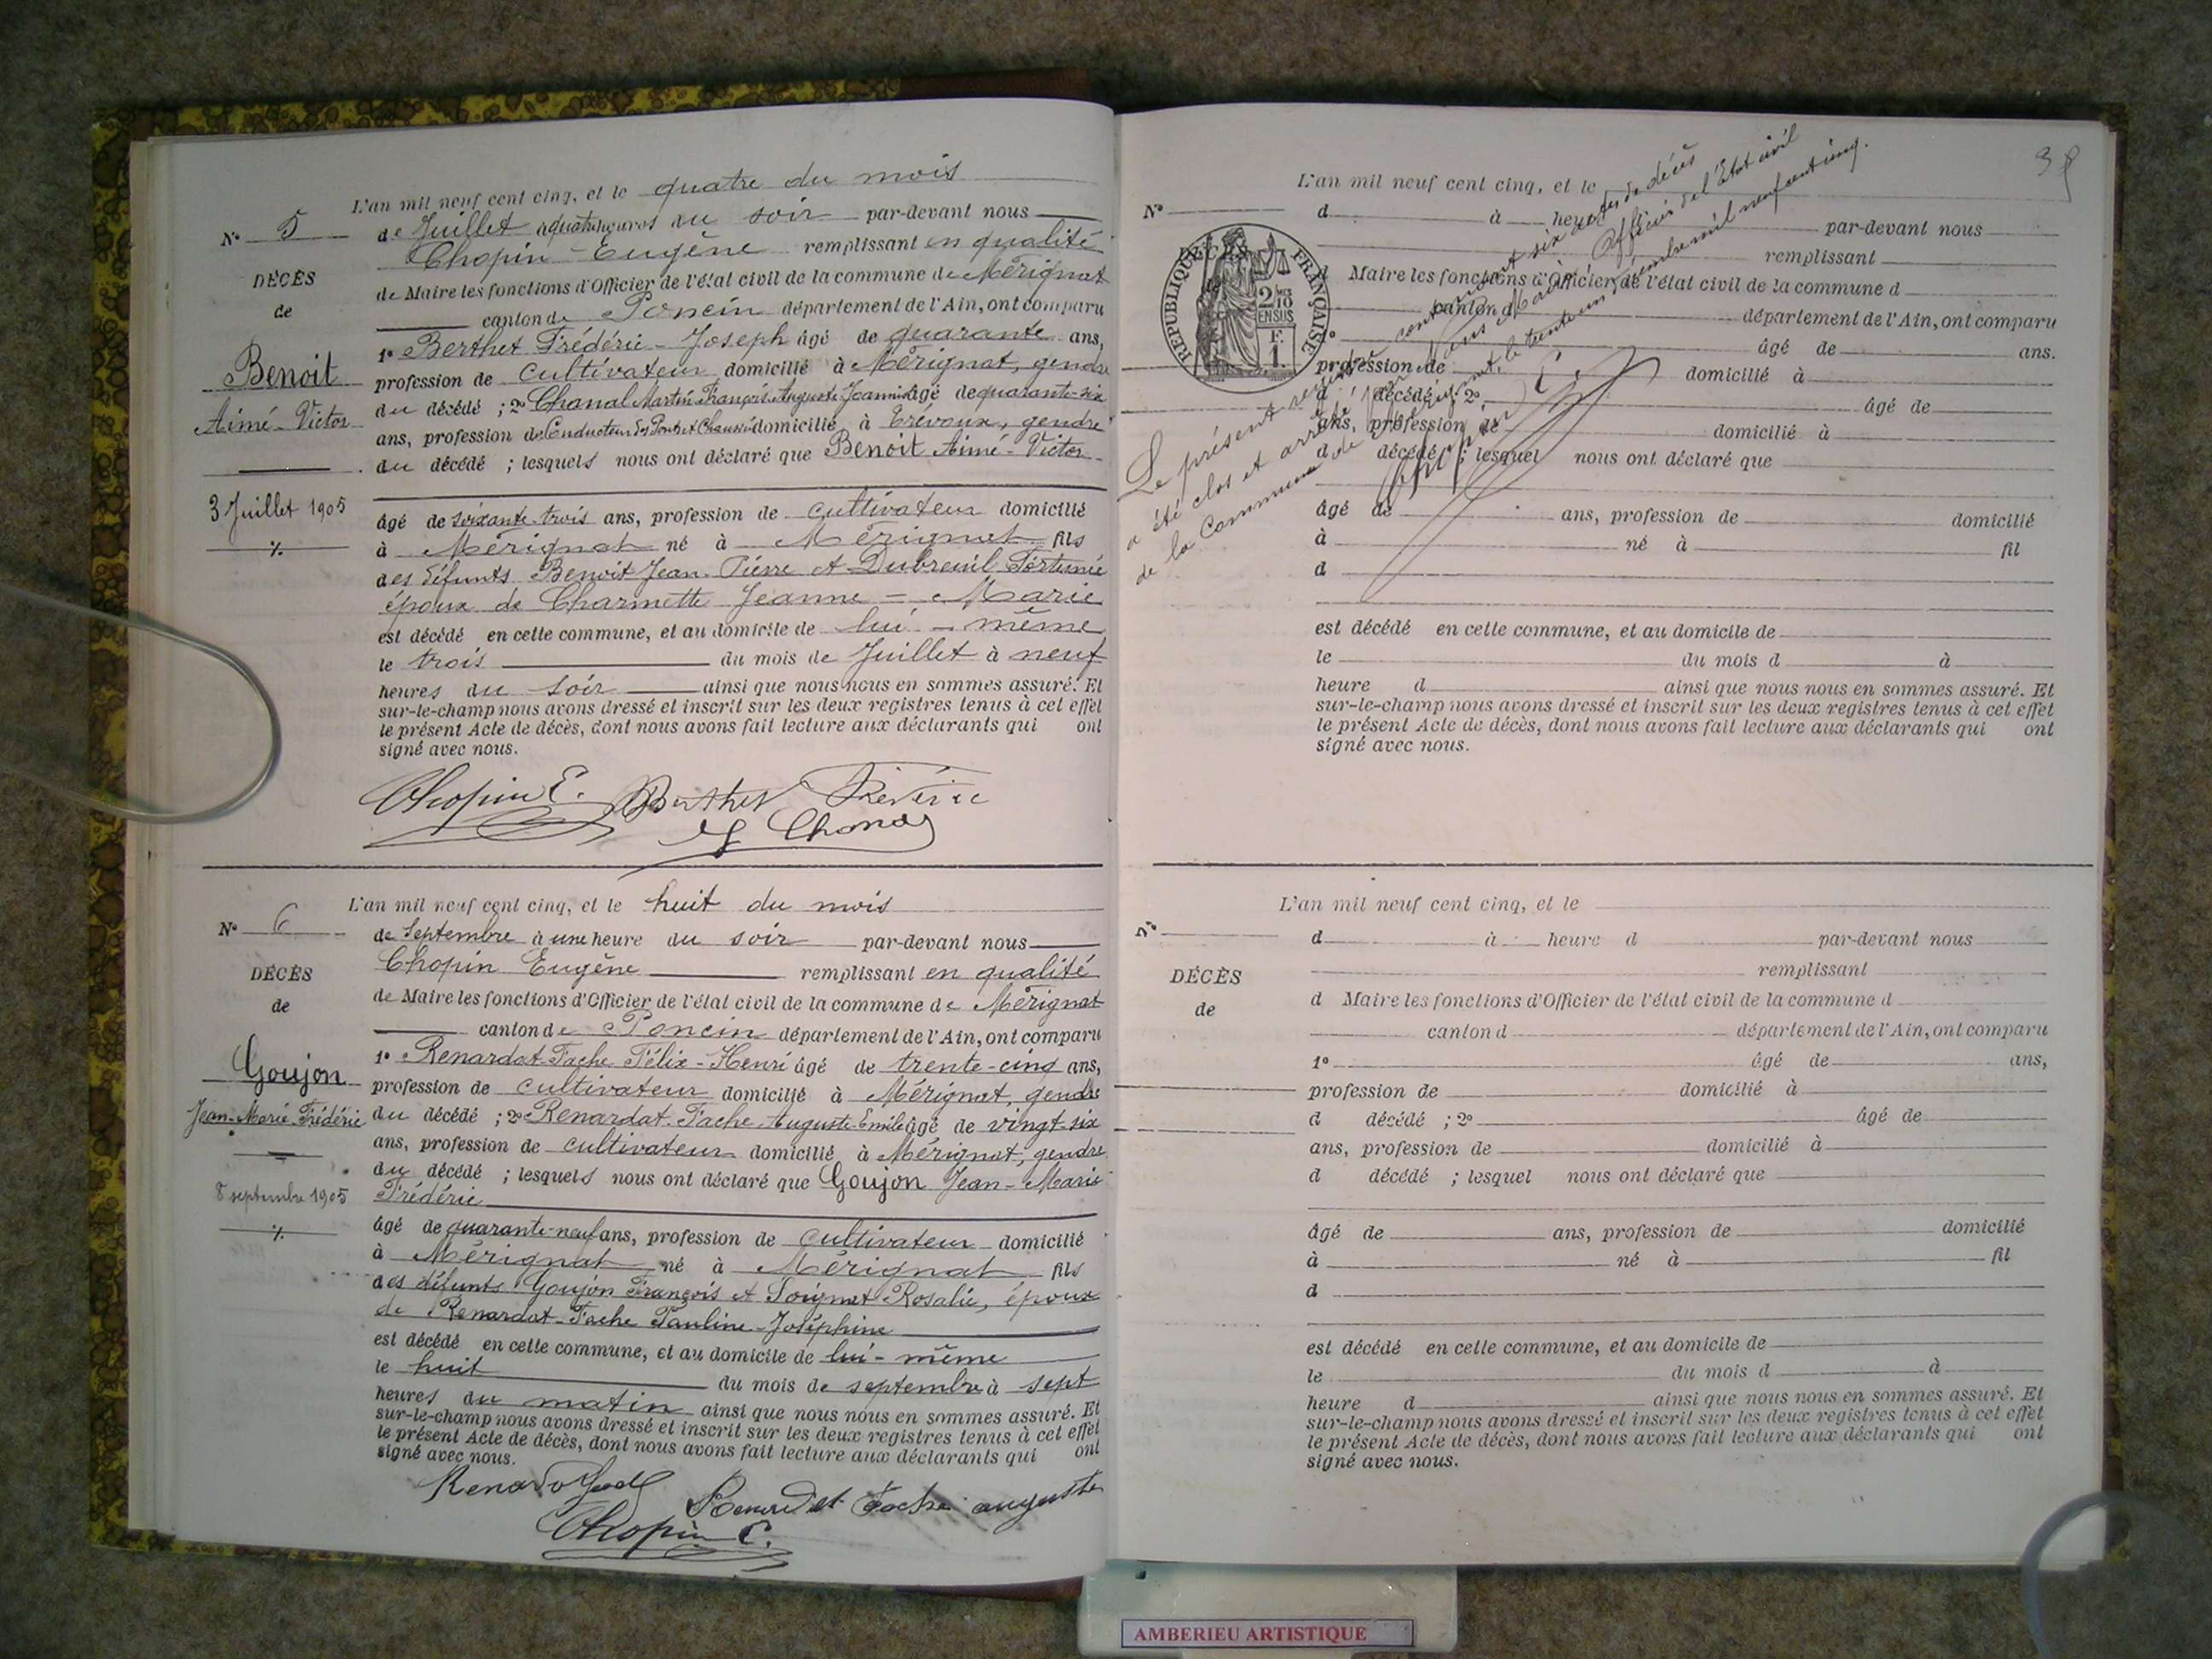 L'an mil neuf cent cinq, et le quatre du mois
N° 5
de Juillet à quatre heures du soir par-devant nous
Chopin Eugène remplissant en qualité
DÉCÈS
de Maire les fonctions d'Officier de l'état civil de la commune de Mérignat
de
canton de Poncin département de l'Ain, ont comparu
1° Berthet Frédéric-Joseph âgé de quarante ans,
Benoit
profession de cultivateur domicilié à Mérignat, gendre
Aimé-Victor
du décédé ; 2° Chanal Martin François Auguste Joannis âgé de quarante-six
ans, profession de Conducteur des Ponts et Chaussées domicilié à Trévoux, gendre
du décédé ; lesquels nous ont déclaré que Benoit Aimé-Victor
3 Juillet 1905
âgé de soixante-trois ans, profession de cultivateur domicilié
à Mérignat né à Mérignat fils
des défunts Benoit Jean-Pierre et Dubreuil Fortunée
époux de Charmette Jeanne-Marie
est décédé en cette commune, et au domicile de lui-même
le trois du mois de Juillet à neuf
heures du soir ainsi que nous nous en sommes assuré. Et
sur-le-champ nous avons dressé et inscrit sur les deux registres tenus à cet effet
le présent Acte de décès, dont nous avons fait lecture aux déclarants qui ont
signé avec nous.
Chopin E. Berthet Frédéric
Chanal
L'an mil neuf cent cinq, et le huit du mois
N° 6
de Septembre à une heure du soir par-devant nous
Chopin Eugène remplissant en qualité
DÉCÈS
de Maire les fonctions d'Officier de l'état civil de la commune de Mérignat
de
canton de Poncin département de l'Ain, ont comparu
1° Renardat-Fache Félix-Henri âgé de trente-cinq ans,
Goujon
profession de cultivateur domicilié à Mérignat, gendre
Jean-Marie Frédéric
du décédé ; 2° Renardat-Fache Auguste-Emile âgé de vingt-six
ans, profession de cultivateur domicilié à Mérignat, gendre
du décédé ; lesquels nous ont déclaré que Goujon Jean-Marie
8 septembre 1905
Frédéric
âgé de quarante-neuf ans, profession de cultivateur domicilié
à Mérignat né à Mérignat fils
des défunts Goujon François et Soignat Rosalie, époux
de Renardat-Fache Pauline-Joséphine
est décédé en cette commune, et au domicile de lui-même
le huit du mois de septembre à sept
heures du matin ainsi que nous nous en sommes assuré. Et
sur-le-champ nous avons dressé et inscrit sur les deux registres tenus à cet effet
le présent Acte de décès, dont nous avons fait lecture aux déclarants qui ont
signé avec nous.
Renardat Fache auguste
Chopin E.
38
L'an mil neuf cent cinq, et le
N°
d à heure d par-devant nous
remplissant
DÉCÈS
RÉPUBLIQUE FRANÇAISE
2/10 EN SUS
F. 1.
d Maire les fonctions d'Officier de l'état civil de la commune d
canton d département de l'Ain, ont comparu
1° âgé de ans.
profession de domicilié à
d décédé ; 2° âgé de
ans, profession de domicilié à
d décédé ; lesquel nous ont déclaré que
Le présent registre contenant six actes de décès
a été clos et arrêté par nous Maire Officier de l'Etat civil
de la Commune de Mérignat, le trente un décembre mil neuf cent cinq.
Chopin E.
âgé de ans, profession de domicilié
à né à fil
d
est décédé en cette commune, et au domicile de
le du mois d à
heure d ainsi que nous nous en sommes assuré. Et
sur-le-champ nous avons dressé et inscrit sur les deux registres tenus à cet effet
le présent Acte de décès, dont nous avons fait lecture aux déclarants qui ont
signé avec nous.
L'an mil neuf cent cinq, et le
N°
d à heure d par-devant nous
remplissant
DÉCÈS
d Maire les fonctions d'Officier de l'état civil de la commune d
de
canton d département de l'Ain, ont comparu
1° âgé de ans,
profession de domicilié à
d décédé ; 2° âgé de
ans, profession de domicilié à
d décédé ; lesquel nous ont déclaré que
âgé de ans, profession de domicilié
à né à fil
d
est décédé en cette commune, et au domicile de
le du mois d à
heure d ainsi que nous nous en sommes assuré. Et
sur-le-champ nous avons dressé et inscrit sur les deux registres tenus à cet effet
le présent Acte de décès, dont nous avons fait lecture aux déclarants qui ont
signé avec nous.
AMBERIEU ARTISTIQUE